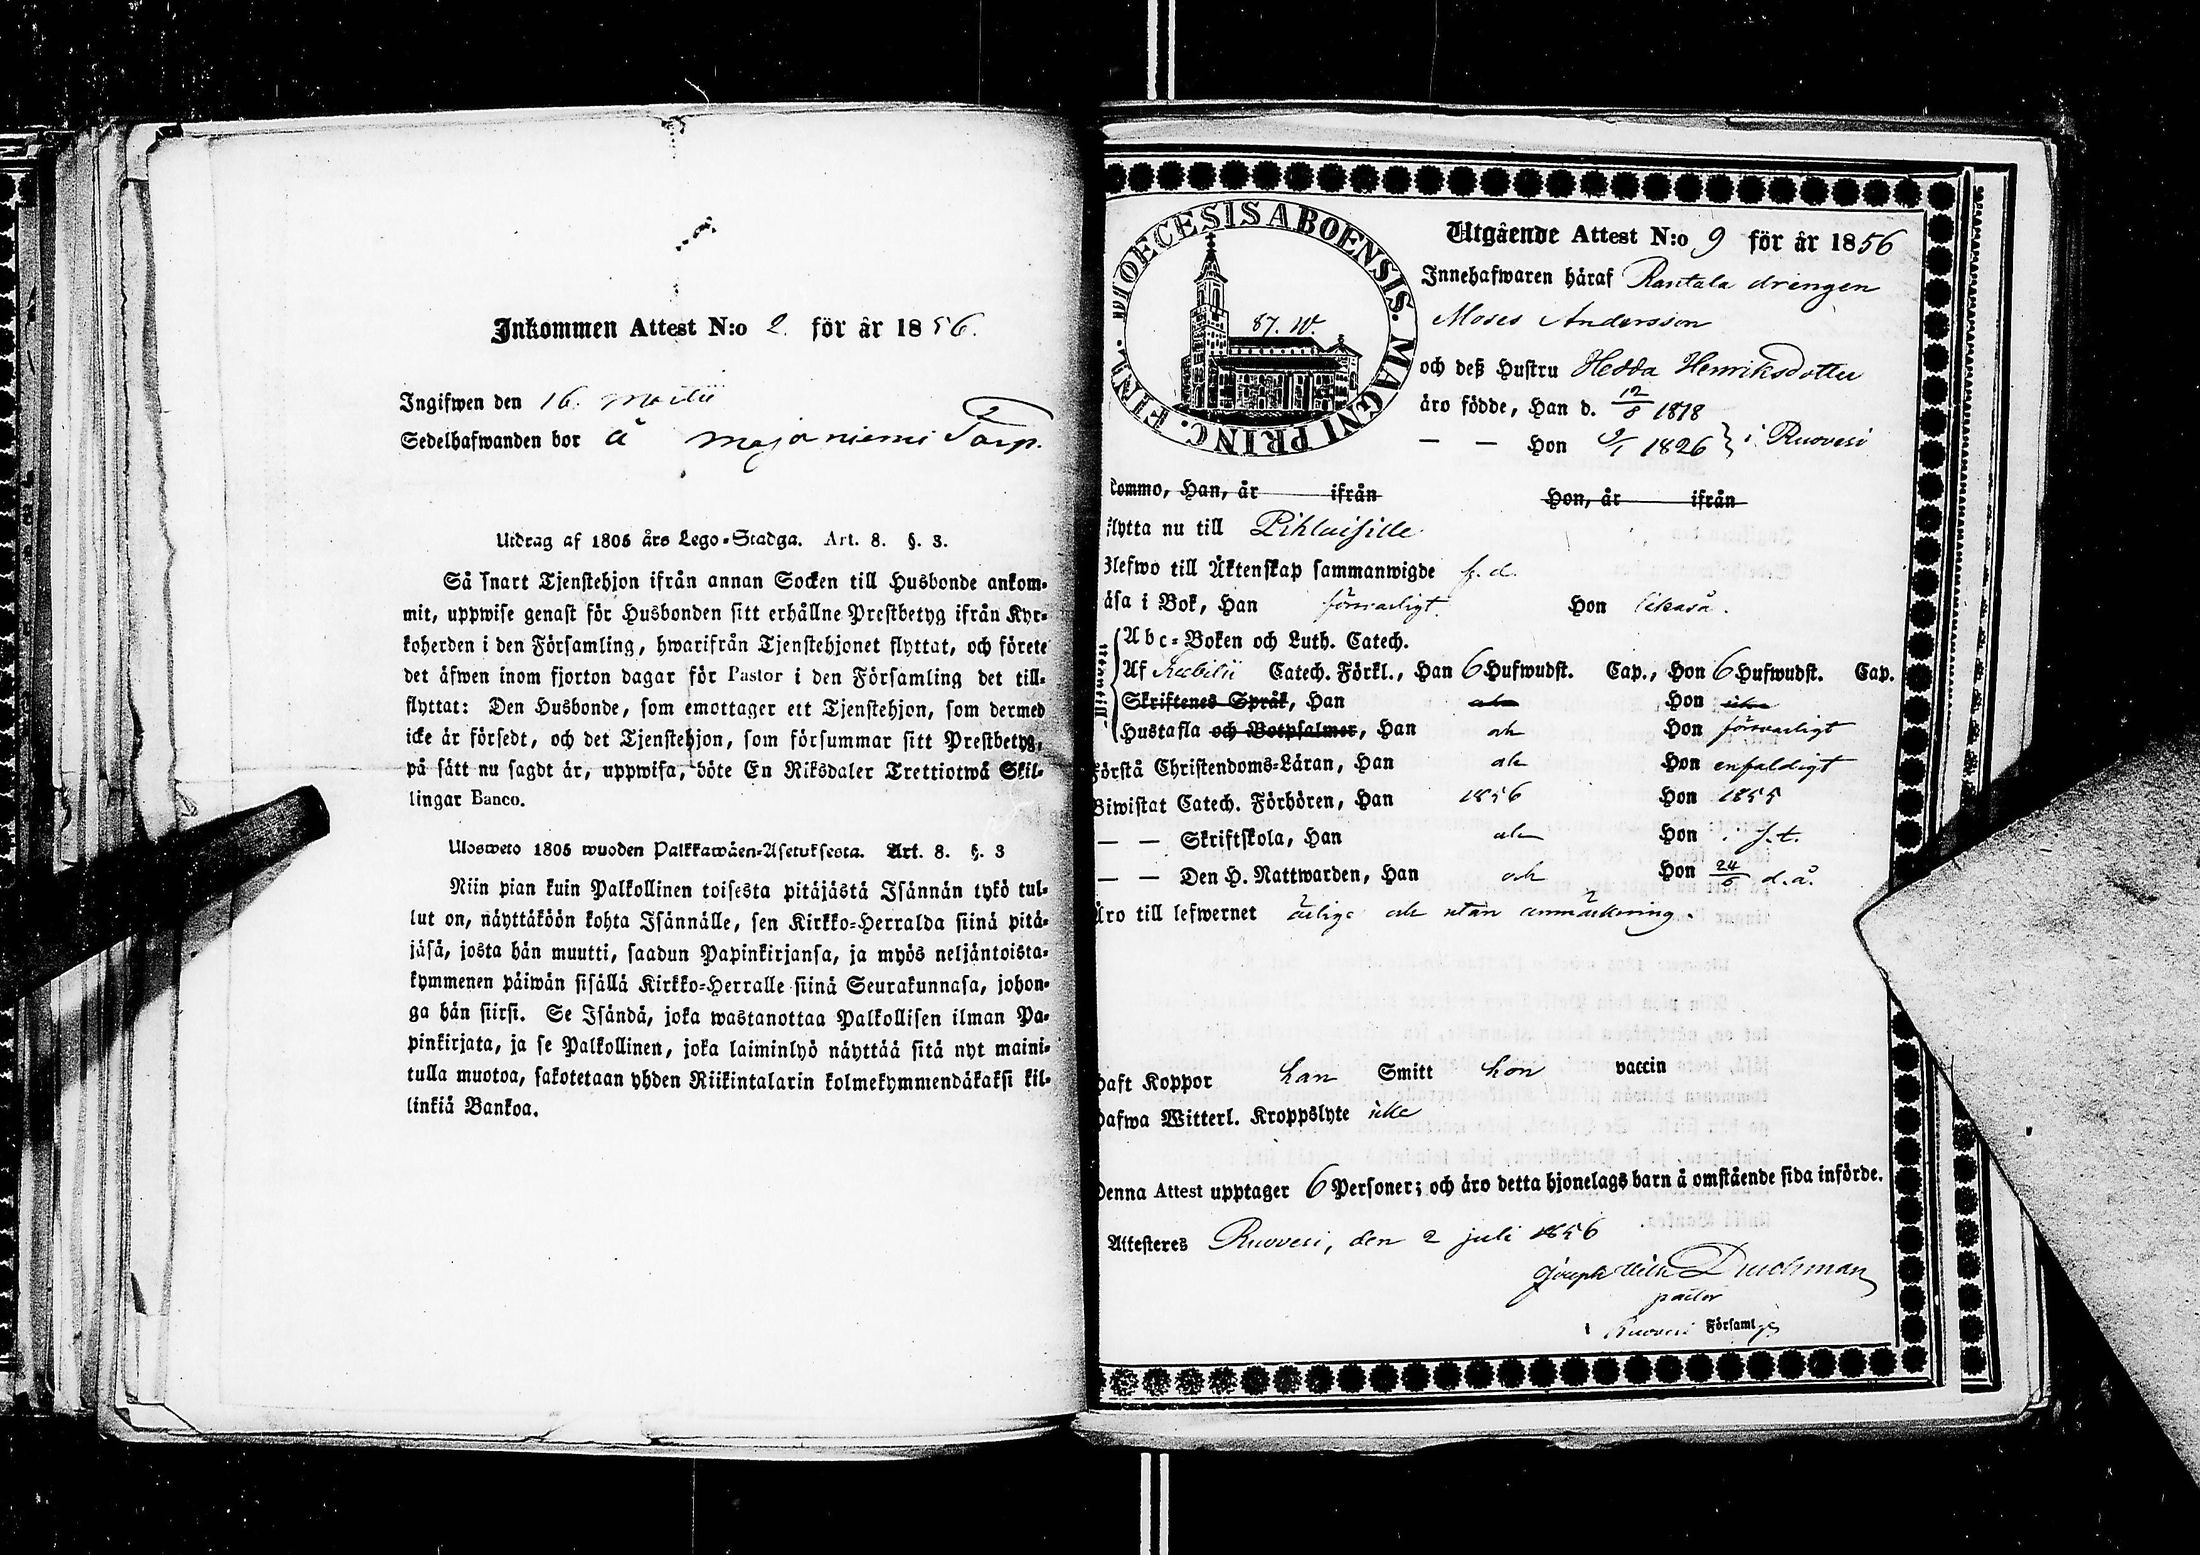 Inkommen Attest N:o 2. för år 1856.
Ingifwen den 16. Martii
Sedelhafwanden bor å Majaniemi Torp.
Utdrag af 1805 års Lego-Stadga. Art. 8. §. 3.
Så snart Tjenstehjon ifrån annan Socken till Husbonde ankom-
mit, uppwise genast för Husbonden sitt erhållne Prestbetyg ifrån Kyr-
koherden i den Församling, hwarifrån Tjenstehjonet flyttat, och förete
det äfwen inom fjorton dagar för Pastor i den Församling det till-
flyttat: Den Husbonde, som emottager ett Tjenstehjon, som dermed
icke är försedt, och det Tjenstehjon, som försummar sitt Prestbetyg,
på sätt nu sagdt är, uppwisa, böte En Riksdaler Trettiotwå Skil-
lingar Banco.
Ulosweto 1805 wuoden Palkkawäen-Asetuksesta. Art. 8. §. 3
Niin pian kuin Palkollinen toisesta pitäjästä Isännän tykö tul-
lut on, näyttäköön kohta Isännälle, sen Kirkko-Herralda siinä pitä-
jäsä, josta hän muutti, saadun Papinkirjansa, ja myös neljäntoista-
kymmenen päiwän sisällä Kirkko-Herralle siinä Seurakunnasa, johon-
ga hän siirsi. Se Isändä, joka wastanottaa Palkollisen ilman Pa-
pinkirjata, ja se Palkollinen, joka laiminlyö näyttää sitä nyt maini-
tulla muotoa, sakotetaan yhden Riikintalarin kolmekymmendäkaksi kil-
linkiä Bankoa.
DIOECESIS ABOENSIS. MAGNI PRINC. FINL.
87. W.
Utgående Attest N:o 9 för år 1856
Innehafwaren häraf Rantala drengen
Moses Andersson
och deß Hustru Hedda Henriksdotter
äro födde, Han d. 12/8 1818
— — Hon 9/1 1826 } i Ruovesi
kommo, Han, år ifrån Hon, år ifrån
flytta nu till Pihlaisille
Blefwo till Äktenskap sammanwigde f. d.
läsa i Bok, Han försvarligt. Hon likaså.
Abc-Boken och Luth. Catech.
Af Catech. Förkl., Han 6 Hufwudst. Cap., Hon 6 Hufwudst. Cap.
Skriftenes Språk, Han och Hon
Hustafla och Botpsalmer, Han och Hon försvarligt
Förstå Christendoms-Läran, Han och Hon enfaldigt
Biwistat Catech. Förhören, Han 1856 Hon 1855
— — Skriftskola, Han och Hon i f. t.
— — Den H. Nattwarden, Han och Hon 24/6 d. å.
Äro till lefwernet ärlige och utan anmärkning.
haft Koppor han Smitt hon vaccin
hafwa Witterl. Kroppslyte icke
Denna Attest upptager 6 Personer; och äro detta hjonelags barn å omstående sida införde.
Attesteres Ruovesi, den 2 juli 1856
Joseph Wilh Durchman
pastor
i Ruovesi Församlg